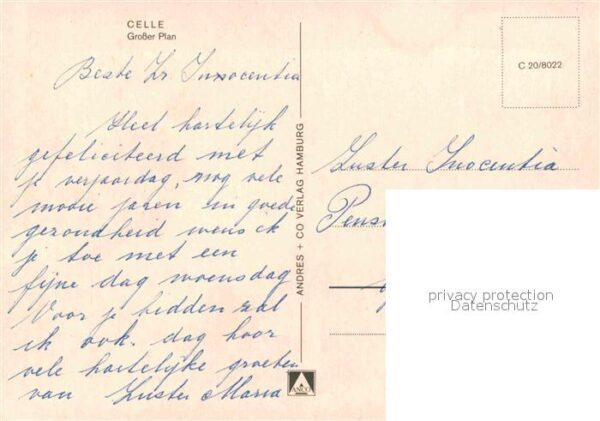 CELLE
Großer Plan
Beste Zr. Innocentia
Heel hartelijk
gefeliciteerd met
je verjaardag, nog vele
mooie jaren in goede
gezondheid wens ik
je toe met een
fijne dag woensdag
Voor je bidden zal
ik ook. dag hoor
vele hartelijke groeten
van Zuster Maria
ANDRES + CO VERLAG HAMBURG
ANCO
C 20/8022
Zuster Inocentia
Pens
privacy protection
Datenschutz